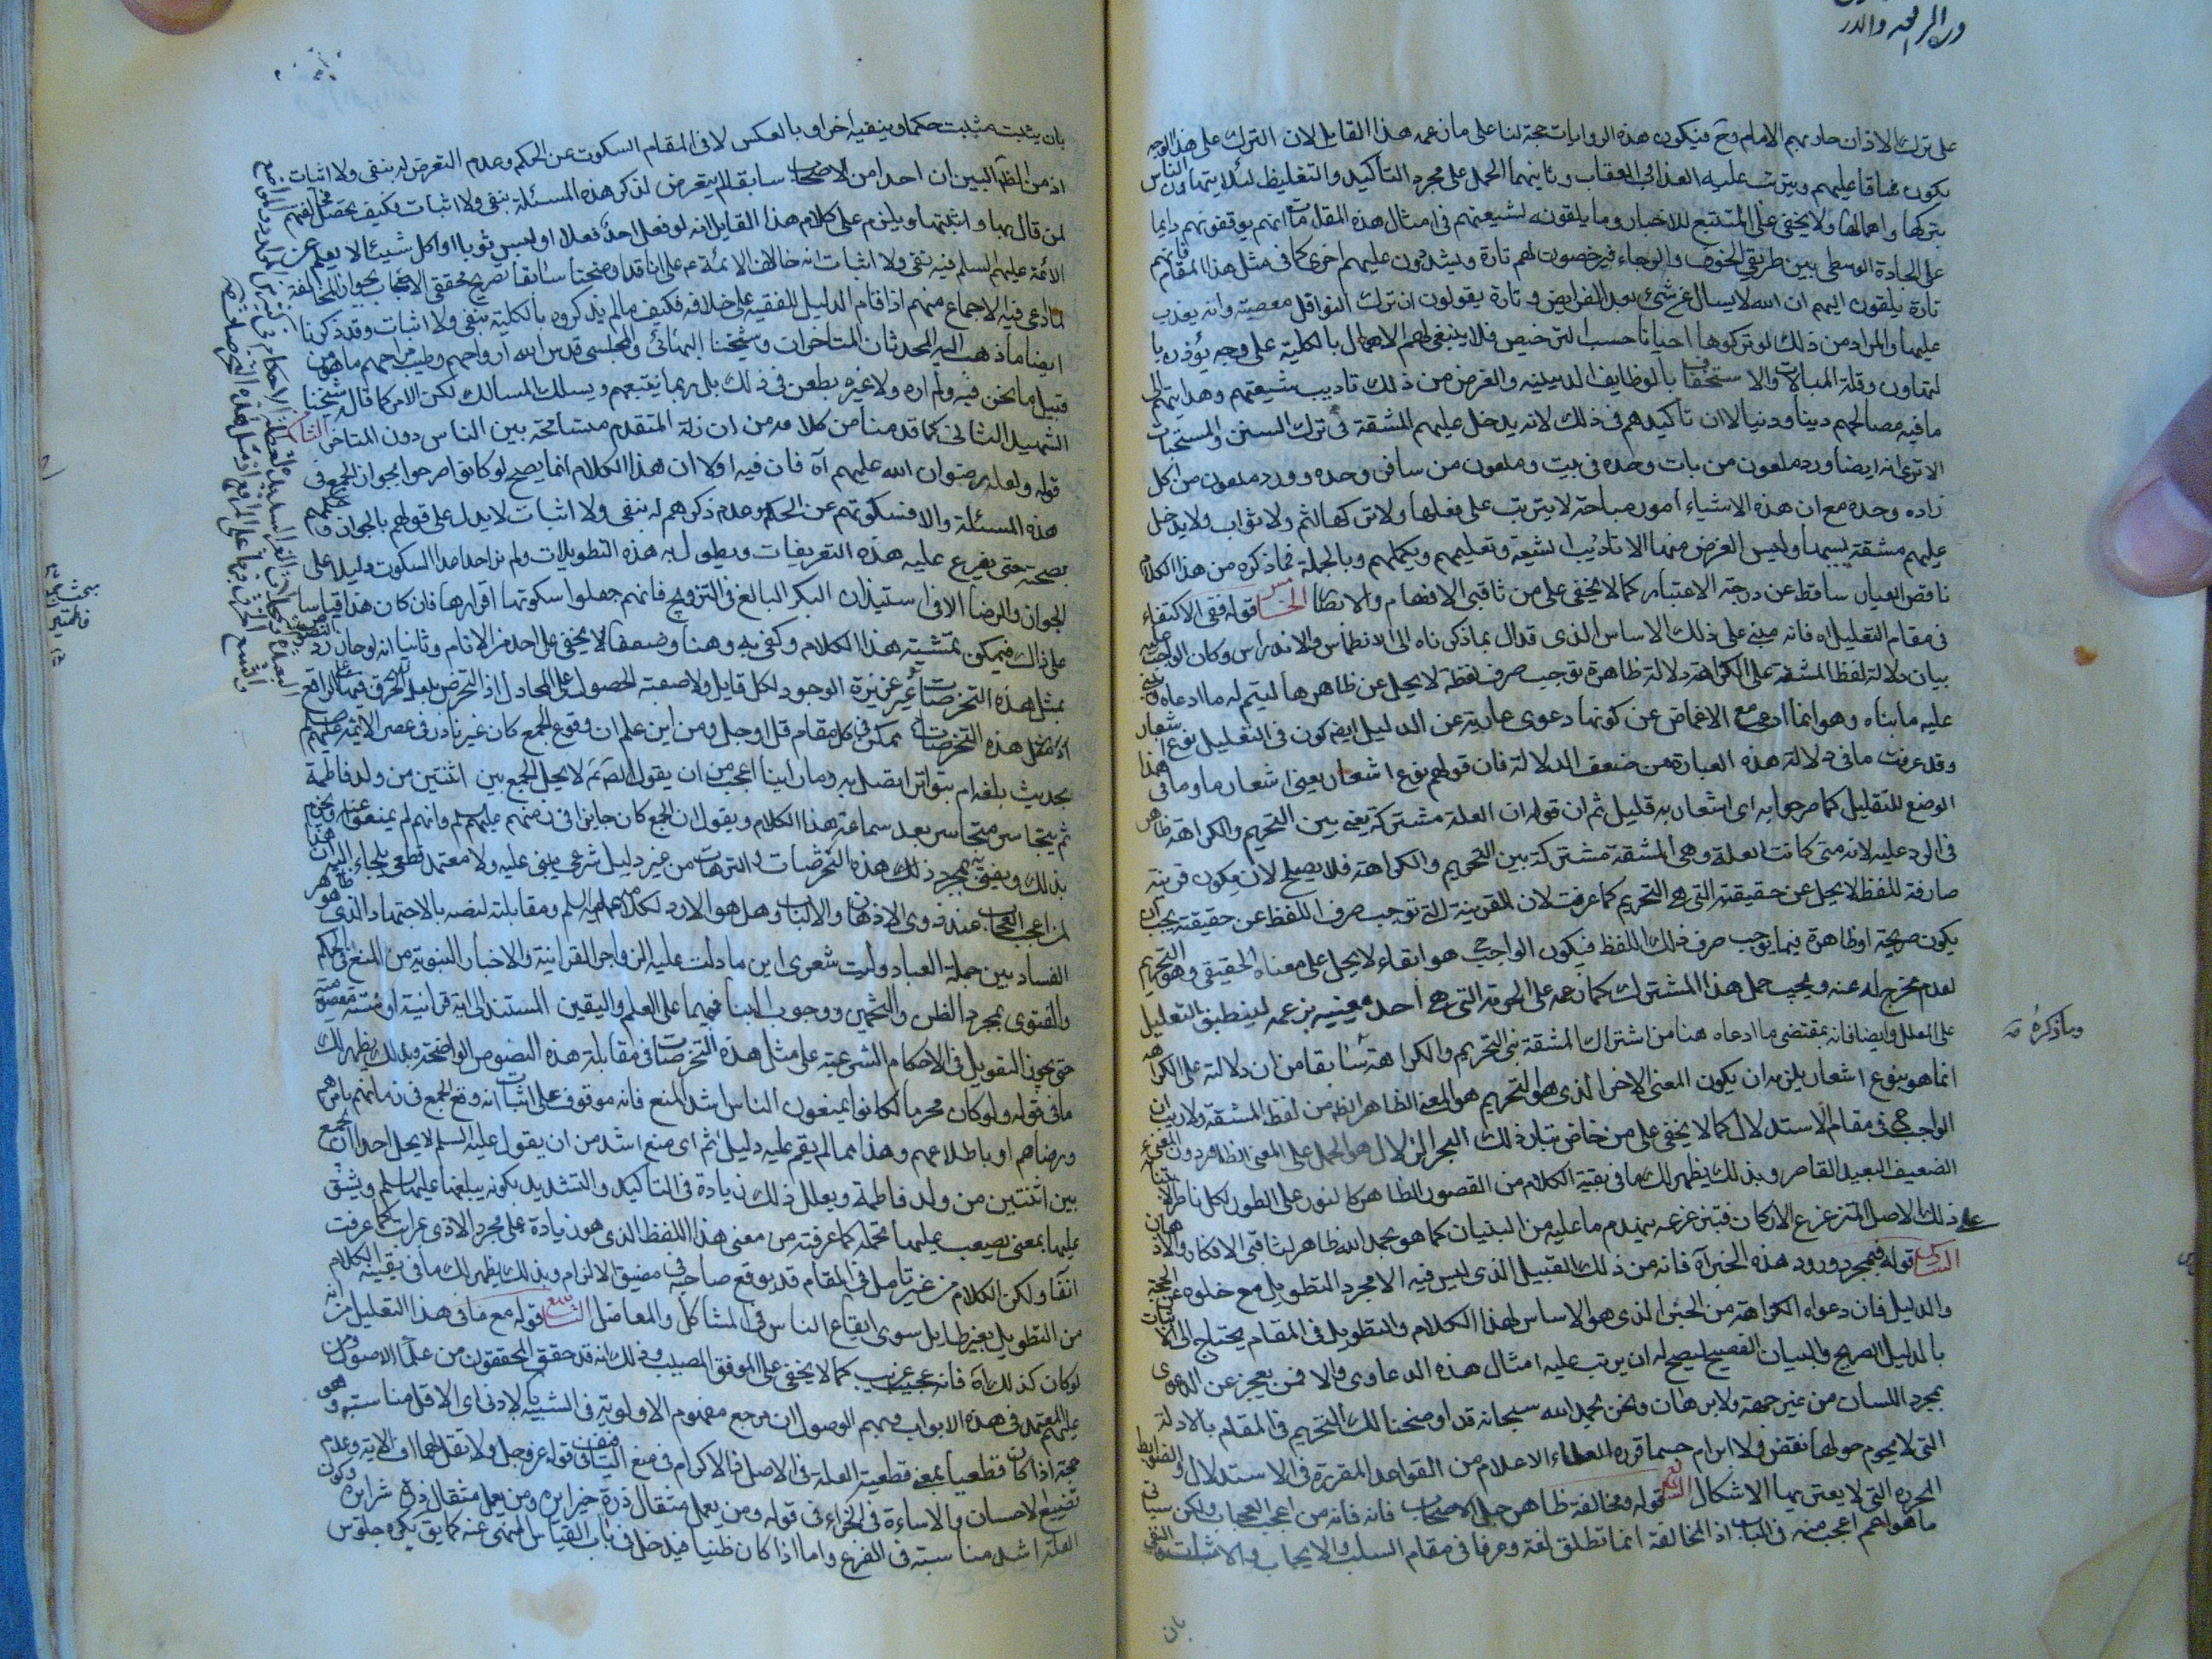 على ترك الاذان حاربهم الامام وح فيكون هذه الروايات حجة لنا على ما زعمه هذا القايل لان الترك على هذا الوجه
يكون شاقا عليهم ويترتب عليه العذاب والعقاب وثانيهما الحمل على مجرد التاكيد والتغليظ لئلا يتهاون الناس
بتركها واهمالها ولا يخفى على المتتبع للاخبار وما يلقونه لشيعتهم في امثال هذه المقامات انهم يوقفونهم دايما
على الجادة الوسطى بين طريقي الخوف والرجاء فيرخصون لهم تارة ويشددون عليهم اخرى كما في مثل هذا المقام فانهم
تارة يلقون اليهم ان الله لا يسال عن شئ بعد الفرايض وتارة يقولون ان ترك النوافل معصية وانه يعذب
عليها والمراد من ذلك لو تركوها احيانا حسب الترخيص فلا ينبغي لهم الاهمال بالكلية على وجه يؤذن با
لتهاون وقلة المبالات والاستخفاف بالوظايف الدينية والغرض من ذلك تاديب شيعتهم وهدايتهم الى
ما فيه مصالحهم دينا ودنيا لا ان تاكيدهم في ذلك لانه يدخل عليهم المشقة في ترك السنن والمستحبات
الا ترى انه ايضا ورد ملعون من بات وحده في بيت وملعون من سافر وحده وورد ملعون من اكل
زاده وحده مع ان هذه الاشياء امور مباحة لا يترتب على فعلها ولا تركها اثم ولا ثواب ولا يدخل
عليهم مشقة بسببها وليس الغرض منها الا تاديب الشيعة وتعليمهم وتكميلهم وبالجملة فما ذكره من هذا الكلام
ناقص العيار ساقط عن درجة الاعتبار كما لا يخفى على من ثاقبي الافهام والانظار الخامس قوله ففي الاكتفاء
في مقام التعليل اه فانه مبني على ذلك الاساس الذي قد ال بما ذكرناه الى الانطماس والاندراس وكان الواجب عليه
بيان دلالة لفظ المشقة على الكراهة دلالة ظاهرة توجب صرف لفظة لا يحل عن ظاهرها ليتم له ما ادعاه
عليه ما بناه وهو انما ادعى مع الاغماض عن كونها دعوى عارية عن الدليل ايضا كون في التعليل نوع اشعار
وقد عرفت ما في دلالة هذه العبارة من ضعف الدلالة فان قولهم نوع اشعار يعني اشعار ما وما في هذا
الوضع للتقليل كما صرحوا به اى اشعار به قليل ثم ان قوله ان العلة مشتركة يعني بين التحريم والكراهة ظاهر
في الرد عليه لانه متى كانت العلة وهي المشقة مشتركة بين التحريم والكراهة فلا يصلح لان يكون قرينة
صارفة للفظ لا يحل عن حقيقته التي هي التحريم كما عرفت لان القرينة التي توجب صرف اللفظ عن حقيقته يجب ان
يكون صريحة او ظاهرة فيما يوجب صرف ذلك اللفظ فيكون الواجب ح هو ابقاء لا يحل على معناه الحقيقي وهو التحريم
لعدم مخرج له عنه ويجب حمل هذا المشترك كما زعمه على الحرمة التي هي احد معنييه بزعمه لينطبق التعليل
على المعلل وايضا فانه بمقتضى ما ادعاه هنا من اشتراك المشقة بين التحريم والكراهة سابقا من ان دلالته على الكراهة
وما ذكره
انما هو بنوع اشعار يلزمه ان يكون المعنى الاخر الذي هو التحريم هو المعنى الظاهر من لفظ المشقة ولا ريب ان
الواجب ح في مقام الاستدلال كما لا يخفى على من خاض تيار ذلك البحر الزلال هو الحمل على المعنى الظاهر دون المعنى
الضعيف البعيد القاصر وبذلك يظهر لك ما في بقية الكلام من القصور الظاهر كالنور على الطور لكل ناظر
على ذلك الاصل المتزعزع الاركان فبتزعزعه ينهدم ما عليه من البنيان كما هو بحمد الله ظاهر لثاقبي الافكار والاذهان
السادس قوله فبمجرد ورود هذه الخبر آه فانه من ذلك القبيل الذي ليس فيه الا مجرد التطويل مع خلوه عن الحجة
والدليل فان دعواه الكراهة من الخبر الذي هو الاساس لهذا الكلام والتطويل في المقام يحتاج الى
بالدليل الصريح والبيان الفصيح ليصح له ان يرتب عليه امثال هذه الدعاوى والا فمن يعجز عن الدعوى
بمجرد اللسان من غير حجة ولا برهان ونحن بحمد الله سبحانه قد اوضحنا لك التحريم في المقام بالادلة
التي لا يحوم حولها نقض ولا ابرام حسبما قرره العلماء الاعلام من القواعد المقررة في الاستدلال والضوابط
المحررة التي لا يعتريها الاشكال السابع قوله ومخالفة ظاهر جل الاصحاب فانه من اعجب العجاب ولكن سياتي
ما هو اعجب منه في الباب اذ المخالفة انما تطلق لغة وعرفا في مقام السلب والايجاب والاثبات والنفي
بان
بان يثبت مثبت حكما وينفيه اخر او بالعكس لا في المقام السكوت عن الحكم وعدم التعرض له بنفي ولا اثبات
اذ من الظاهر البين ان احدا من الاصحاب سابقا لم يتعرض لذكر هذه المسئلة بنفي ولا اثبات فكيف يحصل مخالفتهم
لمن قال بها واثبتها ويلزم على كلام هذا القايل انه لو فعل احد فعلا او لبس ثوبا او اكل شيئا لا يعلم عن
الائمة عليهم السلم فيه نفي ولا اثبات انه خالف الائمة ع على انا قد اوضحنا سابقا تصريح محققي الاصحاب بجواز المخالفة
لما ادعى فيه الاجماع منهم اذا قام الدليل للفقيه على خلافه فكيف ما لم يذكروه بالكلية بنفي ولا اثبات وقد ذكرنا
ايضا ما ذهب اليه المحدثان المتاخران وشيخنا البهائي والمجلسي قدس الله ارواحهم وطيب مراحمهم ما هو من
قبيل ما نحن فيه ولم اره ولا غيره يطعن في ذلك بل ربما يتبعهم ويسلك المسالك لكن الامر كما قال شيخنا
الشهيد الثاني كما قدمنا من كلامه من ان زلة المتقدم متسامحة بين الناس دون المتاخر الثامن
قوله ولعله رضوان الله عليهم آه فان فيه اولا ان هذا الكلام انما يصح لو كانوا صرحوا بجواز الجمع في
هذه المسئلة والا فسكوتهم عن الحكم وعدم ذكرهم له بنفي ولا اثبات لا يدل على قولهم بالجواز
بصحته حتى يفرع عليه هذه التفريعات ويطول به هذه التطويلات ولم نر احدا عد السكوت دليلا على
الجواز والرضا الا في استيذان البكر البالغ في التزويج فانهم جعلوا سكوتها اقرارها فان كان هذا قياسا
على ذلك فيمكن تمشية هذا الكلام وكفى به وهنا وضعفا لا يخفى على احد من الانام وثانيا انه لو جاز رد النصوص
بمثل هذه التخرصات غير عزيزة الوجود لكل قايل ولا صعبة الحصول على المجادل
اذ مثل هذه التخرصات ممكن في كل مقام قل او جل ومن اين علم ان وقوع الجمع كان غير نادر في عصر الائمة عليهم السلم
بحديث بلغه ام بتواتر اتصل به وما راينا اعجب من ان يقول الص ع لا يحل الجمع بين اثنتين من ولد فاطمة
ثم يتجاسر متجاسر بعد سماعه هذا الكلام ويقول ان الجمع كان جايزا في زمنهم عليهم السلم وانهم لم يمنعوا عنه ويجزم
بذلك ويفتي به بمجرد ذلك هذه التخرصات والترهات من غير دليل شرعي يبنى عليه ولا معتمد قطعي يلجاء اليه ان هذا
لمن اعجب العجاب عند ذوى الاذهان والالباب وهل هو الا رد لكلامه عليه السلم ومقابلة لنصه بالاجتهاد الذي هو ظاهر
الفساد بين جملة العباد وليت شعري اين ما دلت عليه الزواجر القرانية والاخبار النبوية من المنع في الحكم
والفتوى بمجرد الظن والتخمين ووجوب البناء فيهما على العلم واليقين المستند الى اية قرانية او سنة معصومية
حتى يجوز التعويل في الاحكام الشرعية على مثل هذه التخرصات في مقابلة هذه النصوص الواضحة وبذلك يظهر لك
ما في قوله ولو كان محرما لكانوا يمنعون الناس اشد المنع فانه موقوف على اثبات انه وقع الجمع في زمانهم بامرهم
ورضاهم او باطلاعهم وهذا مما لم يقم عليه دليل ثم اى منع اشد من ان يقول عليه السلم لا يحل لاحد ان يجمع
بين اثنتين من ولد فاطمة ويعلل ذلك زيادة في التاكيد والتشديد بكونه يبلغها عليها السلم ويشق
عليها بمعنى يصعب عليها تحمله كما عرفته من معنى هذا اللفظ الذي هو زيادة على مجرد الاذى كما عرفت
آنفا ولكن الكلام من غير تامل في المقام قد يوقع صاحبه في مضيق الالزام وبذلك يظهر لك ما في بقية الكلام
من التطويل بغير طايل سوى ايقاع الناس في المشاكل والمعاضل التاسع قوله مع ما في هذا التعليل من انه
لو كان كذلك آه فانه عجيب غريب كما لا يخفى على الموفق المصيب وذلك انه قد حقق المحققون من علماء الاصول ومن
عليهم المعتمد في هذه الابواب وبهم الوصول ان مرجع مفهوم الاولوية في التنبيه بالادنى اى الاقل مناسبة وهو
حجة اذا كان قطعيا بمعنى قطعية العلة في الاصل كالاكرام في منع التافيف في قوله عز وجل ولا تقل لهما اف الاية وعدم
تضييع الاحسان والاساءة في الجزاء في قوله ومن يعمل مثقال ذرة خيرا يره ومن يعمل مثقال ذرة شرا يره وكون
العلة اشد مناسبة في الفرع واما اذا كان ظنيا فيدخل في باب القياس المنهى عنه كما يق يكره جلوس